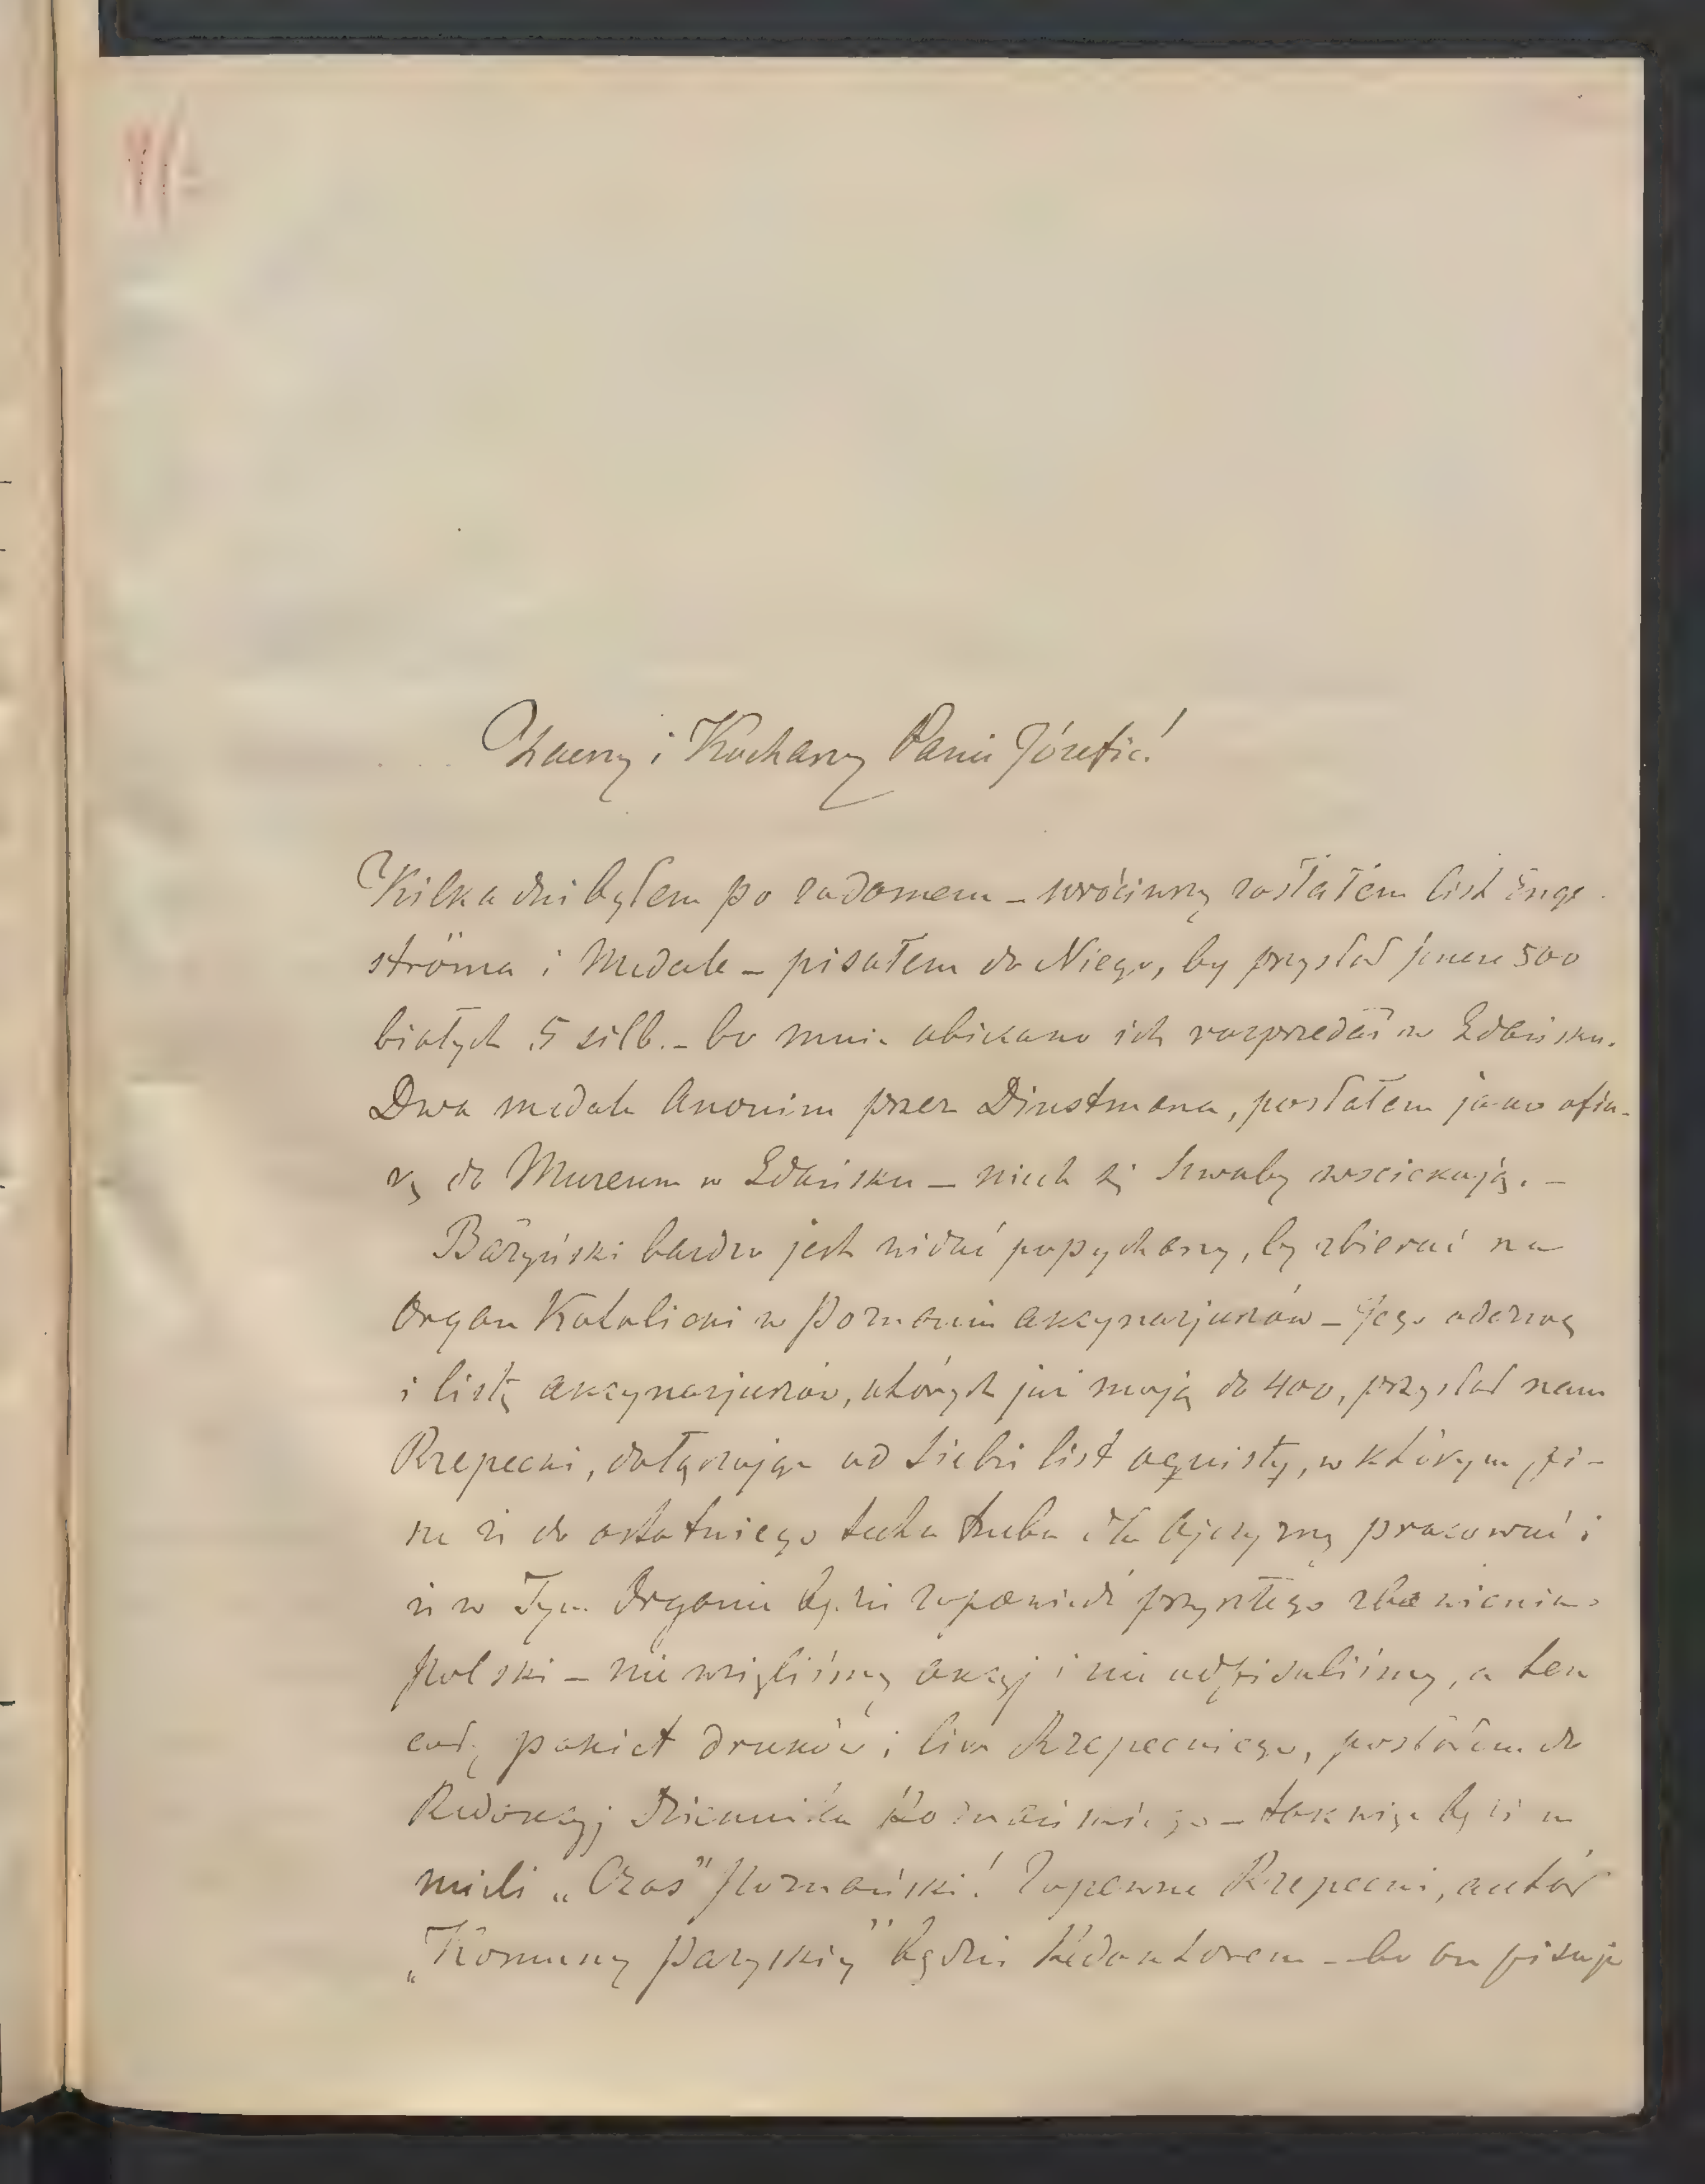 Zacny i Kochany Panie Józefie!
Kilka dni byłem po za domem – wróciwszy zastałem list Enge
ströma i Medale – pisałem do Niego, by przysłał jeszcze 500
białych 5 silb. – bo mnie obiecano ich rozprzedać w Gdańsku.
Dwa medale Anonim przez Dinstmana, posłałem jako ofia-
rę do Muzeum w Gdańsku – niech się Szwaby wsciekają. –
Bażyński bardzo jest widać popychany, by zbierać na
Organ Katolicki w Poznaniu akcynarjuszów – jego odezwę
i listę akcynarjuszów, których już mają do 400, przysłał nam
Rzepecki, dołączając od Siebie list ognisty, w którym pi-
sze że do ostatniego tchu trzeba dla Ojczyzny pracować i
że w Tym Organie będzie zapowiedź przyszłego zbawienia
Polski – nie wzięliśmy akcyj i nie odpisaliśmy, a ten
cały pakiet druków i list Rzepeckiego, posłałem do
Redakcyj Dziennika Poznańskiego – tak więc będziem
mieli „Czas" Poznański! Zapewne Rzepecki, autor
„Komuny Paryskiej" będzie Redaktorem – bo on pisuje